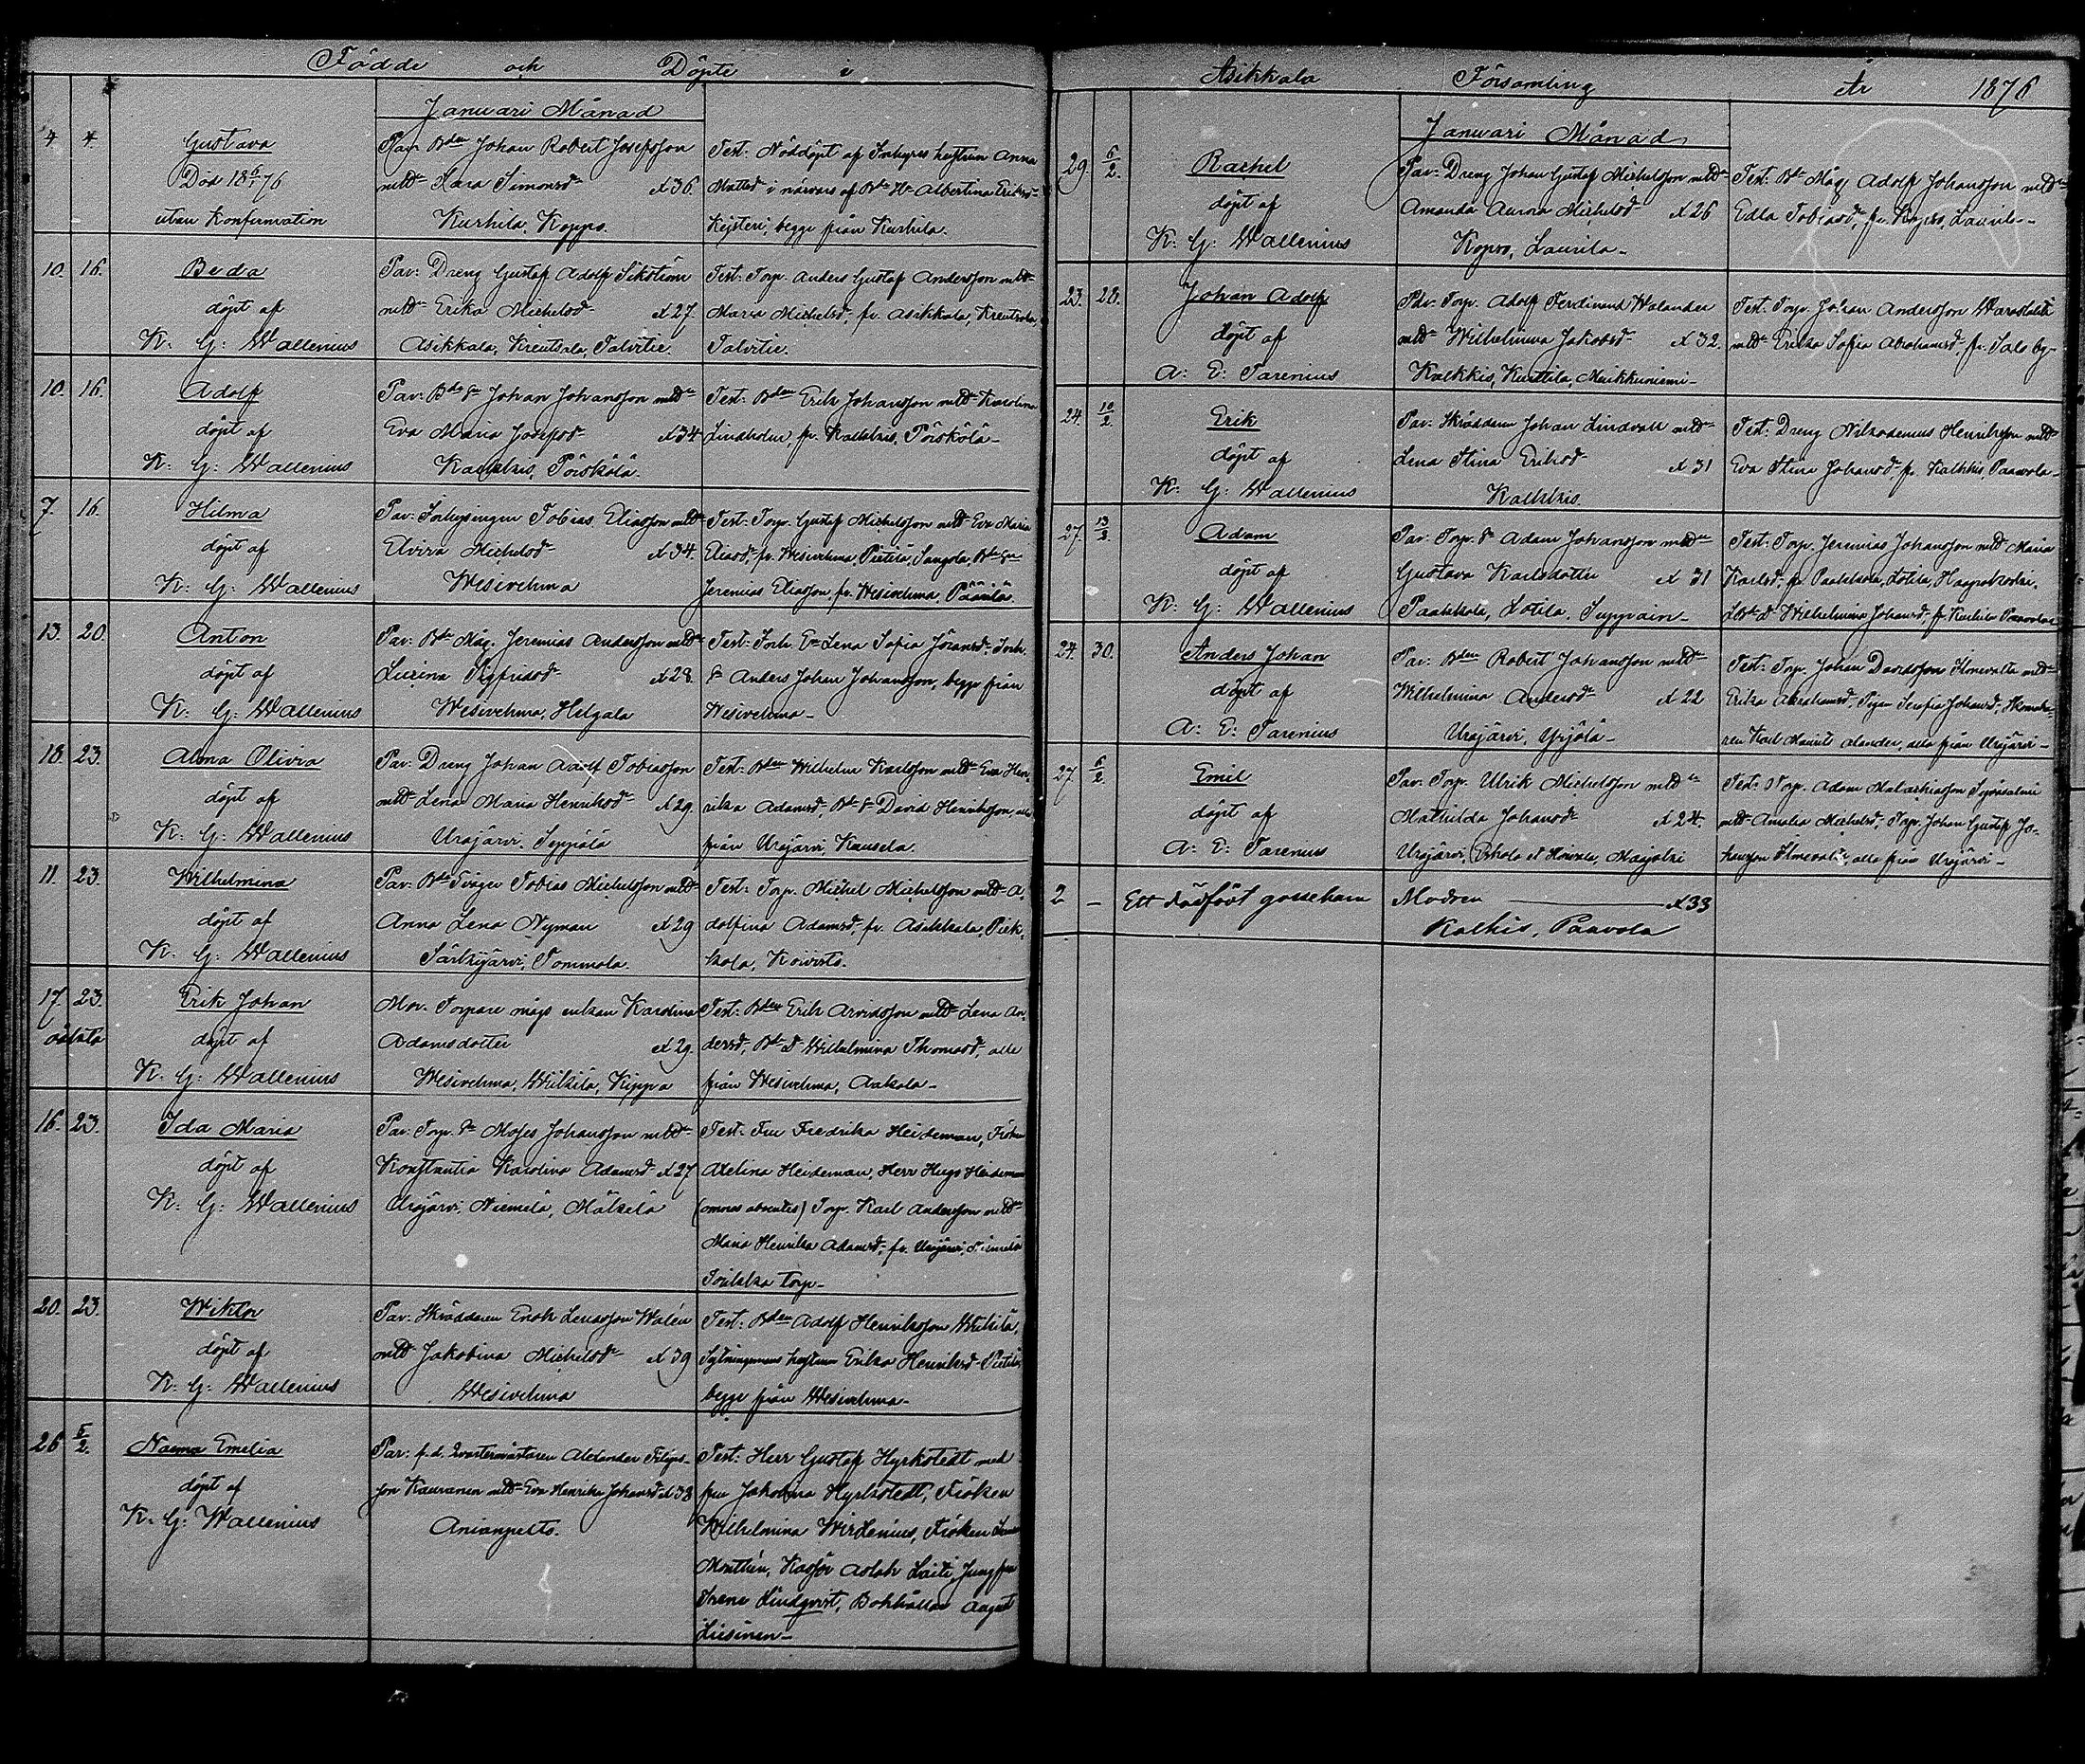 Födde och Döpte i
Januari Månad
4 4. Gustava
Död 18 6/1 76
utan Konfirmation
Par. Bden Johan Robert Josefsson
mtld Sara Simonsd. Æ 36.
Kurhila, Koppo.
Test: Nöddöpt af Inhyses hustrun Anna
Mattsd. i närvaro af Albertina Eriksd.
begge från Kurhila.
10. 16. Beda
döpt af
K: G: Wallenius
Par: Dreng Gustaf Adolf Sikström
mtld Erika Michelsd. Æ 27.
Asikkala, Kreutsela, Talvitie.
Test: Torp. Anders Gustaf Andersson mtld
Maria Michelsd., fr. Asikkala, Kreutsela,
Talvitie.
10. 16. Adolf
döpt af
K: G: Wallenius
Par: Bde Sn Johan Johansson mtld
Eva Maria Josefsd. Æ 34
Kalkkis, Pörskölä.
Test: Bden Erik Johansson mtld Karolina
Lindholm, fr. Kalkkis, Pörskölä.
7. 16. Hilma
döpt af
K: G: Wallenius
Par: Inhysingen Tobias Eliasson mtld
Elvira Michelsd. Æ 34.
Wesivehma
Test: Torp. Gustaf Michelsson mtld Eva Maria
Eliasd., fr. Wesivehma, Pietilä, Sangola,
Jeremias Eliasson, fr. Wesivehma, Päärilä.
13. 20. Anton
döpt af
K: G: Wallenius
Par: Bde Måg. Jeremias Andersson mtld
Lisina Sigfridsd. Æ 28.
Wesivehma, Helgala
Test: Inh. Lena Sofia Göransd., Inh.
Sn Anders Johan Johansson, begge från
Wesivehma.
18. 23. Alma Olivia
döpt af
K: G: Wallenius
Par: Dreng Johan Adolf Tobiasson
mtld Lena Maria Henriksd. Æ 29.
Urajärvi, Seppälä
Test: Bden Wilhelm Karlsson mtld Eva Hen-
rika Adamsd., Bde Sn David Henriksson, alla
från Urajärvi, Kausela.
11. 23. Wilhelmina
döpt af
K: G: Wallenius
Par: Bde Svåger Tobias Michelsson mtld
Anna Lena Nyman Æ 29
Särkijärvi, Tommola.
Test: Torp. Michel Michelsson mtld A-
dolfina Adamsd., fr. Asikkala, Piek-
kala, Koivisto.
17. 23. Erik Johan
oäkta döpt af
K: G: Wallenius
Mor. Torpare mågs enkan Karolina
Adamsdotter Æ 29.
Wesivehma, Wähkilä, Kippa
Test: Bden Erik Arvidsson mtld Lena An-
dersd., Bde D. Wilhelmina Thomasd., alla
från Wesivehma, Aakala.
16. 23. Ida Maria
döpt af
K: G: Wallenius
Par: Torp. Sn Moses Johansson mtld
Konstantia Karolina Adamsd. Æ 27
Urajärvi, Niemelä, Mäkelä
Test: Fru Fredrika Heideman, Fröken
Axelina Heideman, Herr Hugo Heideman
(omnes absentes) Torp. Karl Andersson mtld
Maria Henrika Adamsd., fr. Urajärvi, Niemelä
torp.
20. 23. Wiktor
döpt af
K: G: Wallenius
Par: Skräddaren Enok Lenasson Walén
mtld Jakobina Michelsd. Æ 39
Wesivehma
Test: Bden Adolf Henriksson Wähkilä,
Sytningsmans hustrun Erika Henriksd. Pietilä,
begge från Wesivehma.
26 6/2. Naema Emelia
döpt af
K: G: Wallenius
Par: f.d. Qvartermästaren Alexander Filips-
son Kauranen mtld Eva Henrika Johansd. Æ 33
Anianpelto.
Test: Herr Gustaf Hyrkstedt med
fru Jakobina Hyrkstedt, Fröken
Wilhelmina Wirzenius, Fröken
Monthén, Kassör Aslak Laiti, Jungfru
Irene Lindqvist, Bokhållar August
Liisinen.
Asikkala Församling År 1876
Januari Månad
29. 6/2. Rachel
döpt af
K: G: Wallenius
Par: Dreng Johan Gustaf Michelsson mtld
Amanda Aurora Michelsd. Æ 26
Kopso, Laurila.
Test: Bde Måg Adolf Johansson mtld
Edla Tobiasd., fr. Kopso, Laurila.
23. 28. Johan Adolf
döpt af
A: E: Tarenius
Par: Torp. Adolf Ferdinand Walander
mtld Wilhelmina Jakobsd. Æ 32.
Kalkkis, Kurttila, Meikkuniemi.
Test: Torp. Johan Andersson
mtld Erika Sofia Abrahamsd., fr. Salo by.
24. 10/2. Erik
döpt af
K: G: Wallenius
Par: Skräddaren Johan Lindvall mtld
Lena Stina Eriksd. Æ 31
Kalkkis.
Test: Dreng Nikodemus Henriksson mtld
Eva Stina Johansd., fr. Kalkkis, Paavola.
27. 13/2. Adam
döpt af
K: G: Wallenius
Par: Torp. Sn Adam Johansson mtld
Gustava Karlsdotter Æ 31
Paakkola, Lotila, Seppäin.
Test: Torp. Jeremias Johansson mtld Maria
Karlsd., fr. Paakkola, Lotila,
Wilhelmina Johansd., fr. Kurhila Paavola.
24. 30. Anders Johan
döpt af
A: E: Tarenius
Par: Bden Robert Johansson mtld
Wilhelmina Andersd. Æ 22
Urajärvi, Yrjölä.
Test: Torp. Johan Davidsson Ilmevalta mtld
Erika Abrahamsd., Pigan Serafia Johansd., Skomaka-
ren Karl Maurits Alander, alla från Urajärvi.
27. 6/2. Emil
döpt af
A: E: Tarenius
Par: Torp. Ulrik Michelsson mtld
Mathilda Johansd. Æ 24.
Urajärvi, Erkola et Hovila, Maajoki
Test: Torp. Adam Malachiasson Syväsalmi
mtld Amalia Michelsd., Torp. Johan Gustaf Jo-
hansson Ilmevalta, alla från Urajärvi.
2 – Ett dödfödt gossebarn
Modren Æ 33
Kalkis, Paavola